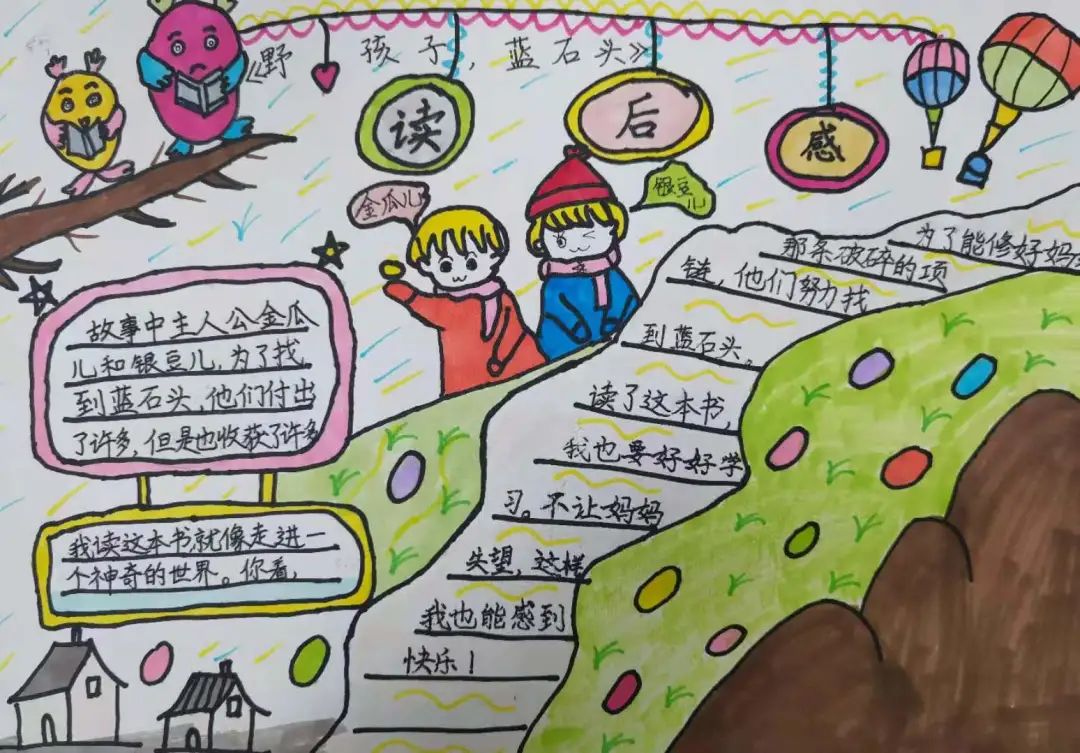 《野孩子,蓝石头》
读 后 感
金瓜儿
银豆儿
故事中主人公金瓜
儿和银豆儿,为了找
到蓝石头,他们付出
了许多,但是也收获了许多
我读这本书,就像走进一
个神奇的世界。你看,
为了能修好妈
那条破碎的项
链,他们努力找
到蓝石头。
读了这本书,
我也要好好学
习。不让妈妈
失望,这样
我也能感到
快乐!